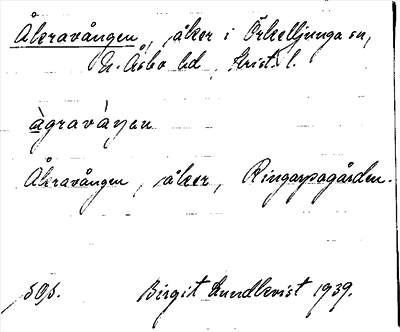 Åkravången, åker i Örkelljunga sn,
N. Åsbo hd, Krist. l.
àgravàŋen
Åkravången, åker, Ringarpagården.
s. 9, 5.
Birgit Lundkvist 1939.